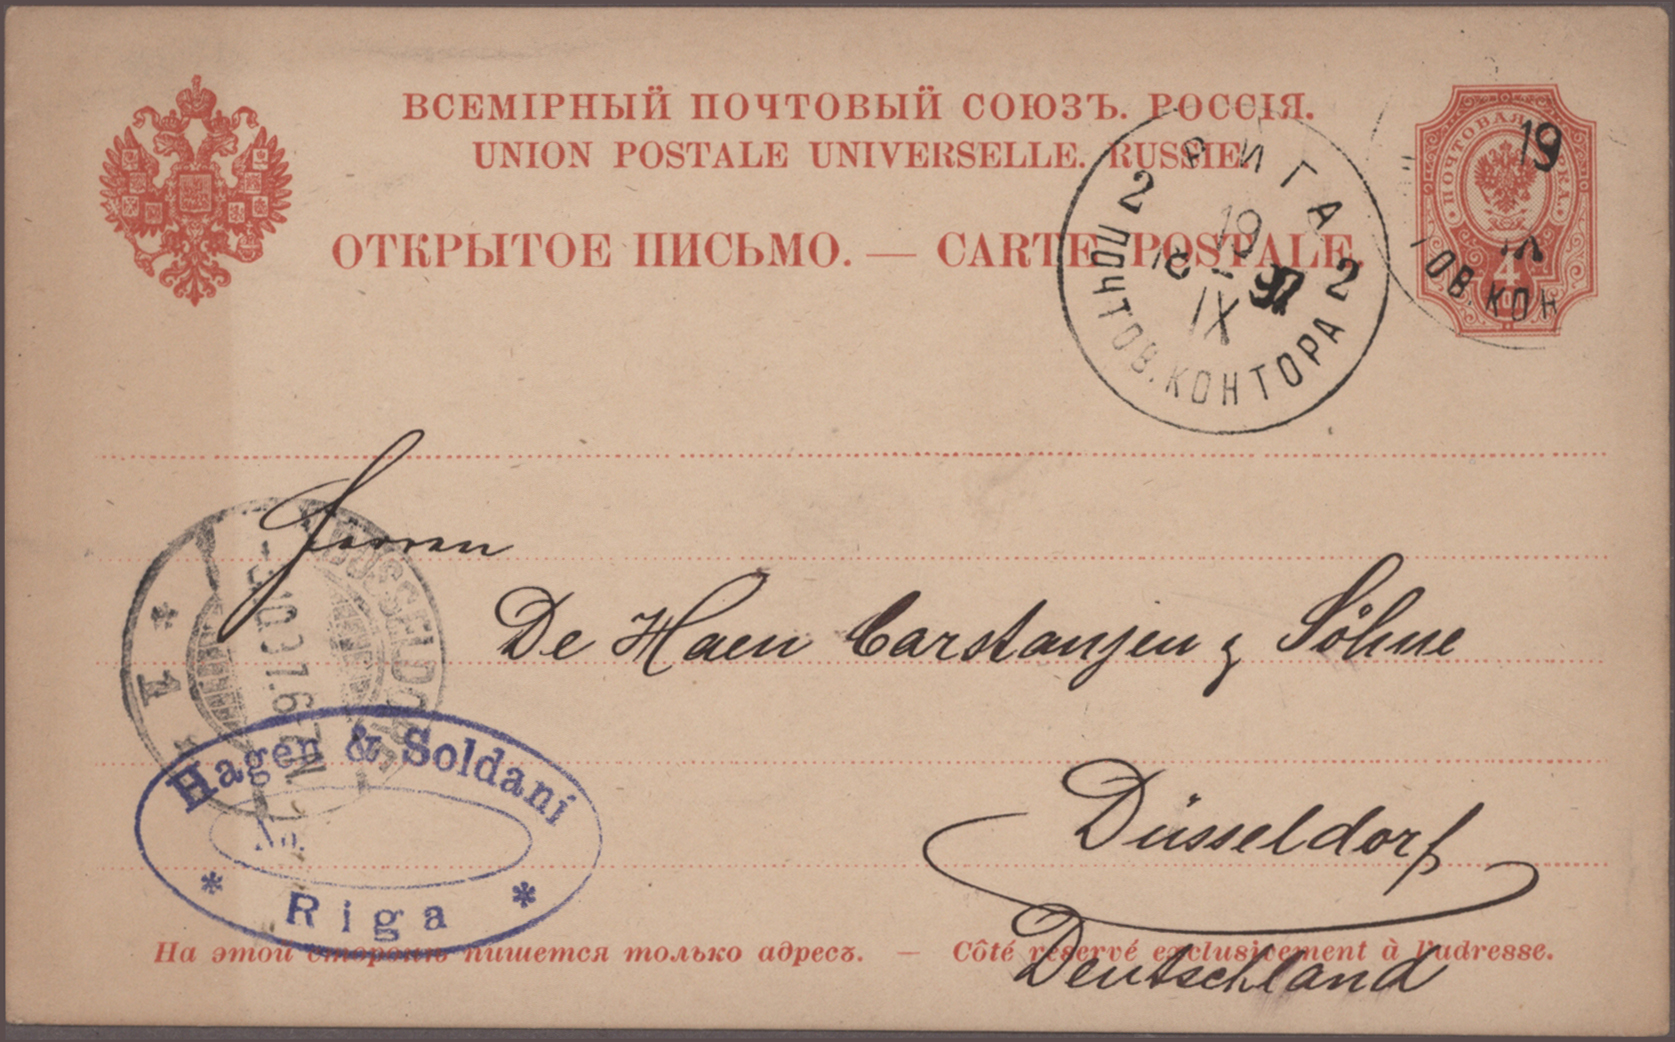 ВСЕМІРНЫЙ ПОЧТОВЫЙ СОЮЗЪ. РОССІЯ.
UNION POSTALE UNIVERSELLE. RUSSIE.
ОТКРЫТОЕ ПИСЬМО. — CARTE POSTALE.
ПОЧТОВАЯ МАРКА.
4
19
ТОВ. КОН
РИГА
2 2
19
IX
ПОЧТОВ. КОНТОРА
Herren
De Haen Carstanjen & Söhne
Düsseldorf
Deutschland
DÜSSELDORF
1
Hagen & Soldani
No.
* Riga *
На этой сторонѣ пишется только адресъ. — Côté réservé exclusivement à l'adresse.